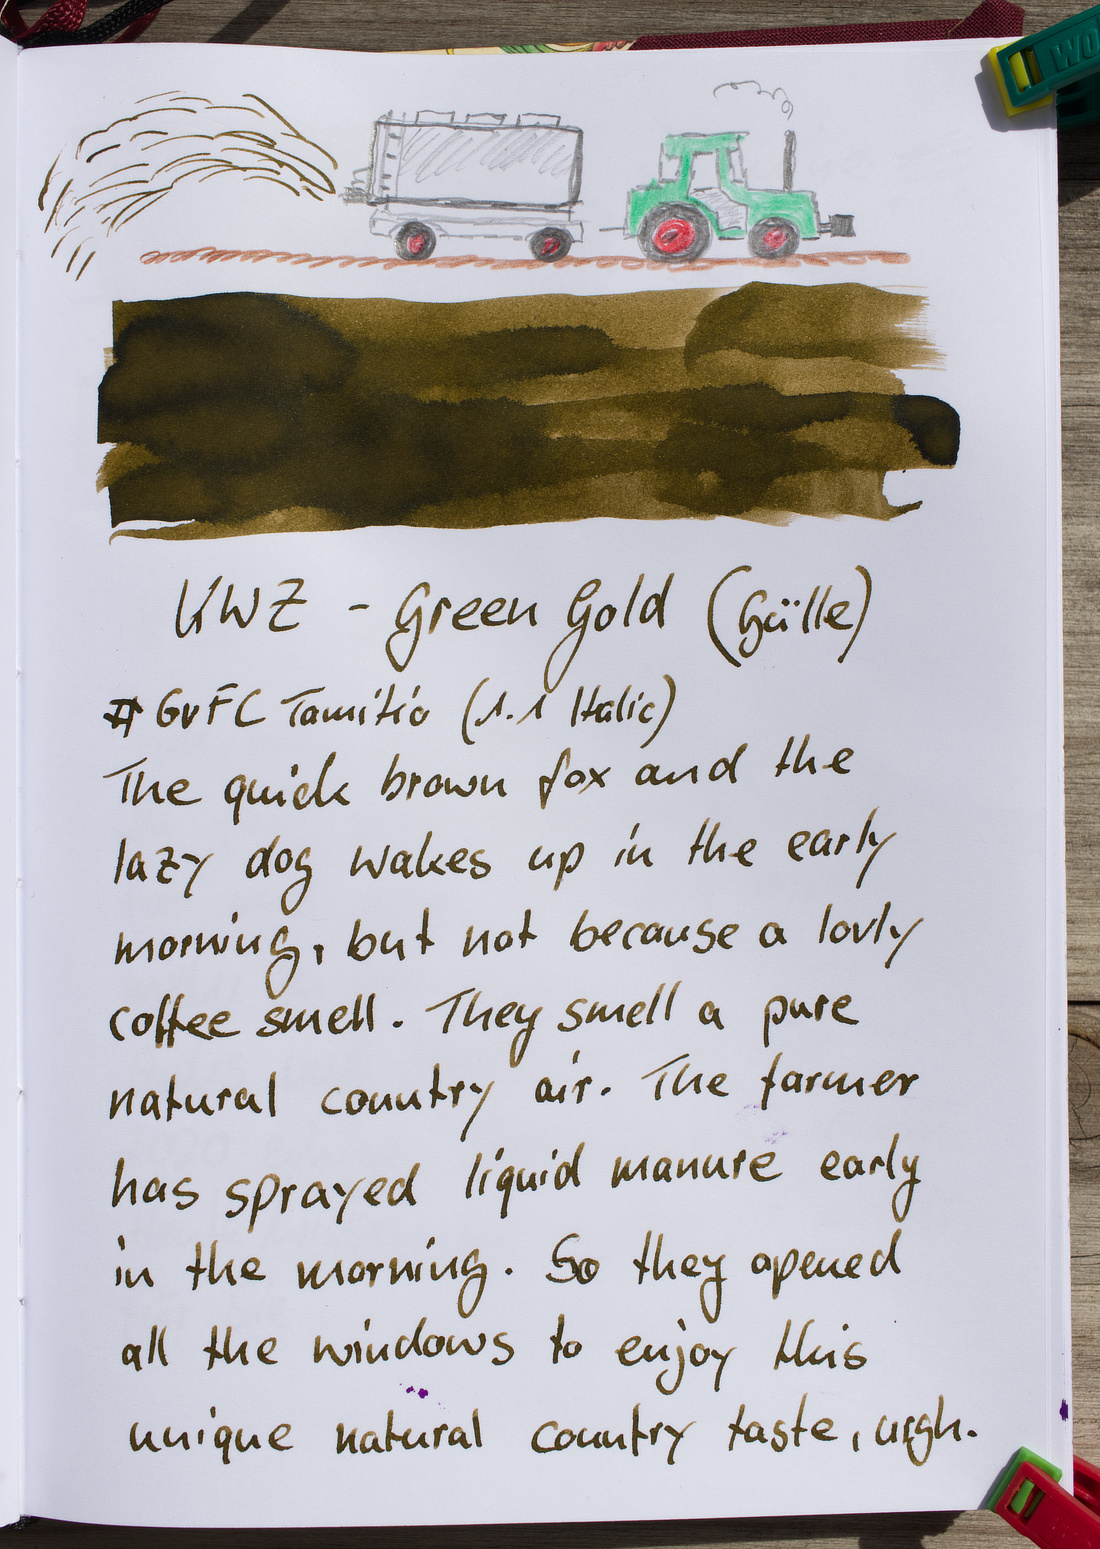 WO
KWZ - Green Gold (Gülle)
# GvFC Tamitio (1.1 Italic)
The quick brown fox and the
lazy dog wakes up in the early
morning, but not because a lovly
coffee smell. They smell a pure
natural country air. The farmer
has sprayed liquid manure early
in the morning. So they opened
all the windows to enjoy this
unique natural country taste, urgh.